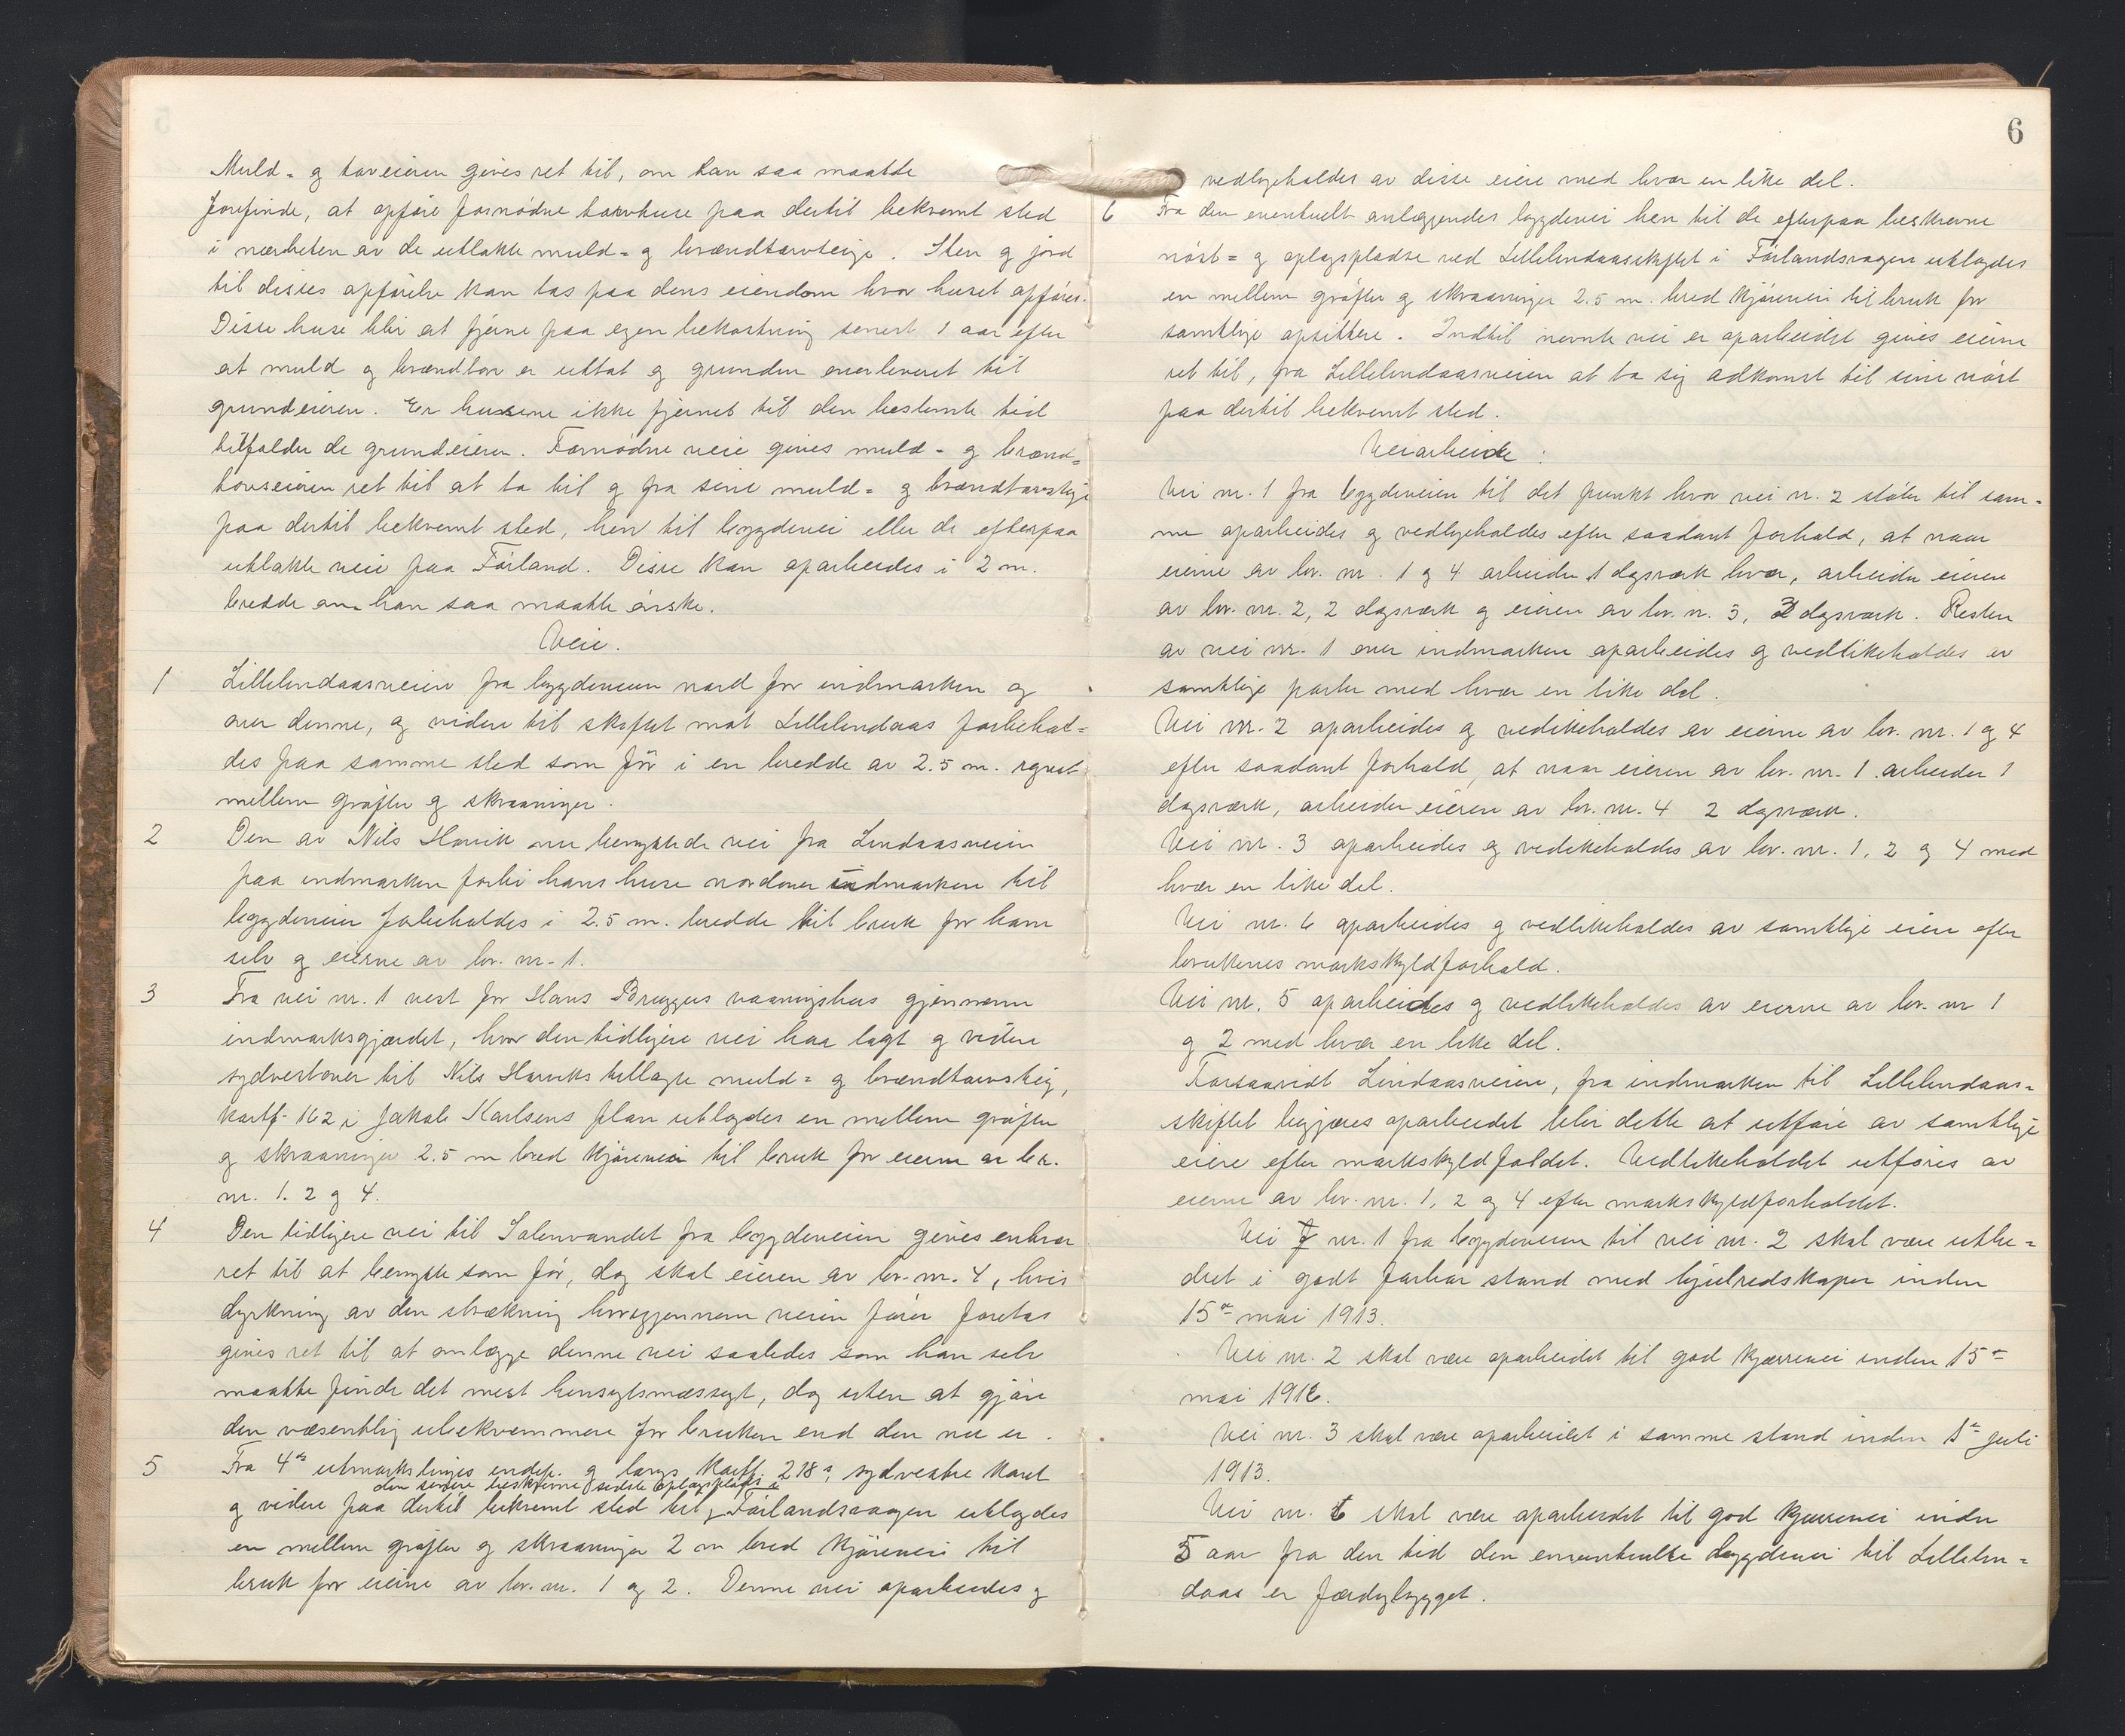 Muld- og torveieren gives ret til, om han saa maatte
forefinde, at opføre fornødne torvhuse paa dertil bekvemt sted
i nærheten av de utlakte muld- og brændtorvteige. Sten og jord
til disses opførelse kan tas paa dens eiendom hvor huset opføres.
Disse huse blir at fjerne paa egen bekostning senest 1 aar efter
at muld og brændtorv er uttat og grunden overleveret til
grundeieren. Er husene ikke fjernet til den bestemte tid
tilfalder de grundeieren. Fornødne veie gives muld- og brænd-
torvseieren ret til at ta til og fra sine muld- og brændtorvteige
paa dertil bekvemt sted, hen til bygdevei eller de efterpaa
utlakte veie paa Førland. Disse kan oparbeides i 2 m.
bredde om han saa maatte ønske.
Veie.
1 Lillelindaasveien fra bygdeveien nord for indmarken og
over denne, og videre til skiftet mot Lillelindaas forbehol-
des paa samme sted som før i en bredde av 2.5 m. regnet
mellem grøfter og skraaninger.
2 Den av Nils Hovik nu benyttede vei fra Lindaasveien
paa indmarken forbi hans huse nordover indmarken til
bygdeveien forbeholdes i 2.5 m. bredde til bruk for ham
selv og eierne av br. nr. 1.
3 Fra vei nr. 1 vest for Hans Brugges vaaningshus gjennem
indmarksgjærdet, hvor den tidligere vei har lagt og videre
sydvestover til Nils Hoviks tillagte muld- og brændtorvsteig,
kartf. 162 i Jakob Karlsens plan utlegdes en mellem grøfter
og skraaninger 2.5 m bred kjørevei til bruk for eierne av br.
nr. 1. 2 og 4.
4 Den tidligere vei til Salenvandet fra bygdeveien gives enhver
ret til at benytte som før, dog skal eieren av br. nr. 4, hvis
dyrkning av den strækning hvorigjennem veien fører foretas
gives ret til at omlægge denne vei saaledes som han selv
maatte finde det mest hensigtsmæssigt, dog uten at gjøre
den væsentlig ubekvemmere for bruken end den nu er.
5 Fra 4de utmarkslinjes endep. og langs kartf. 218s sydvestre kant
den senere beskrevne sidste oplagsplads i
og videre paa dertil bekvemt sted til Førlandsvaagen utlegdes
en mellem grøfter og skraaninger 2 m bred kjørevei til
bruk for eierne av br. nr. 1 og 2. Denne vei oparbeides og
6
vedligeholdes av disse eiere med hver en like del.
6 Fra den eventuelt anlæggendes bygdevei hen til de efterpaa beskrevne
nøst- og oplagspladse ved Lillelindaasskiftet i Førlandsvagen utlegdes
en mellem grøfter og skraaninger 2.5 m. bred kjørevei til bruk for
samtlige opsittere. Indtil nevnte vei er oparbeidet gives eierne
ret til, fra Lillelindaasveien at ta sig adkomst til sine nøst
paa dertil bekvemt sted.
Veiarbeide:
Vei nr. 1 fra bygdeveien til det punkt hvor vei nr. 2 støter til sam-
me oparbeides og vedligeholdes efter saadant forhold, at naar
eierne av br. nr. 1 og 4 arbeider 1 dagsverk hver, arbeider eieren
av br. nr. 2, 2 dagsverk og eieren av br. nr. 3, 3 dagsverk. Resten
av vei nr. 1 over indmarken oparbeides og vedlikeholdes av
samtlige parter med hver en like del.
Vei nr. 2 oparbeides og vedlikeholdes av eierne av br. nr. 1 og 4
efter saadant forhold, at naar eieren av br. nr. 1 arbeider 1
dagsverk, arbeider eieren av br. nr. 4 2 dagsverk.
Vei nr. 3 oparbeides og vedlikeholdes av br. nr. 1, 2 og 4 med
hver en like del.
Vei nr. 6 oparbeides og vedlikeholdes av samtlige eiere efter
brukenes markskyldforhold.
Vei nr. 5 oparbeides og vedlikeholdes av eierne av br. nr 1
og 2 med hver en like del.
Forsaavidt Lindaasveien, fra indmarken til Lillelindaas-
skiftet begjæres oparbeidet blir dette at utføre av samtlige
eiere efter markskyldfoldet. Vedlikeholdet utføres av
eierne av br. nr. 1, 2 og 4 efter markskyldforholdet.
Vei nr. 1 fra bygdeveien til vei nr. 2 skal være utbe-
dret i godt farbar stand med hjulredskaper inden
15de mai 1913.
Vei nr. 2 skal være oparbeidet til god kjærrevei inden 15de
mai 1916.
Vei nr. 3 skal være oparbeidet i samme stand inden 1ste juli
1913.
Vei nr. 6 skal være oparbeidet til god kjærrevei inden
5 aar fra den tid den eventuelle bygdevei til Lillelin-
daas er færdigbygget.